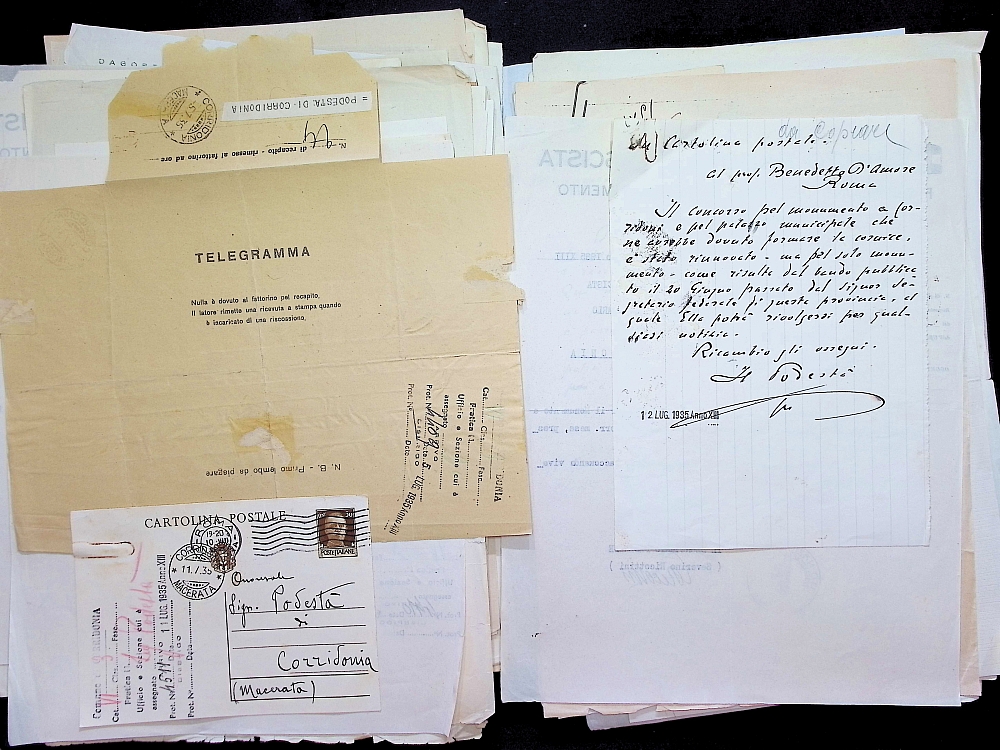 DAGOR
CORRIDONIA
* MACERATA *
5.7.35
= PODESTA DI CORRIDONIA
N. di recapito - rimesso al fattorino ad ore
TELEGRAMMA
Nulla è dovuto al fattorino pel recapito.
Il latore rimette una ricevuta a stampa quando
è incaricato di una riscossione.
N. B. - Primo lembo da piegare
DONIA
Cat. Clas. Fasc.
Pratica il
Ufficio e Sezione cui è
assegnato
Prot. N. Data 5 LUG. 1935 Anno XIII
Prot. N. Data
CARTOLINA POSTALE
ROMA
19-20
10·VII
POSTE ITALIANE
CORRIDONIA
* 11.7.35 *
MACERATA
Onorevole
Sign. Podestà
di
Corridonia
(Macerata)
Comune di CORRIDONIA
Cat. VI Clas. Fasc.
Pratica il
Ufficio e Sezione cui è
assegnato
Prot. N. 11 LUG. 1935 Anno XIII
Prot. N. Data
da copiare
Cartolina postale.
al prof. Benedetto D'Amore
Roma
Il concorso pel monumento a Cor-
ridoni e pel palazzo municipale che
ne avrebbe dovuto formare la cornice,
è stato rinnovato - ma pel solo monu-
mento - come risulta dal bando pubblica-
to il 20 Giugno passato dal signor Se-
gretario federale di questa provincia, al
quale Ella potrà rivolgersi per qual-
siasi notizia.
Ricambio gli ossequi.
Il Podestà
12 LUG. 1935 Anno XIII
SCISTA
MENTO